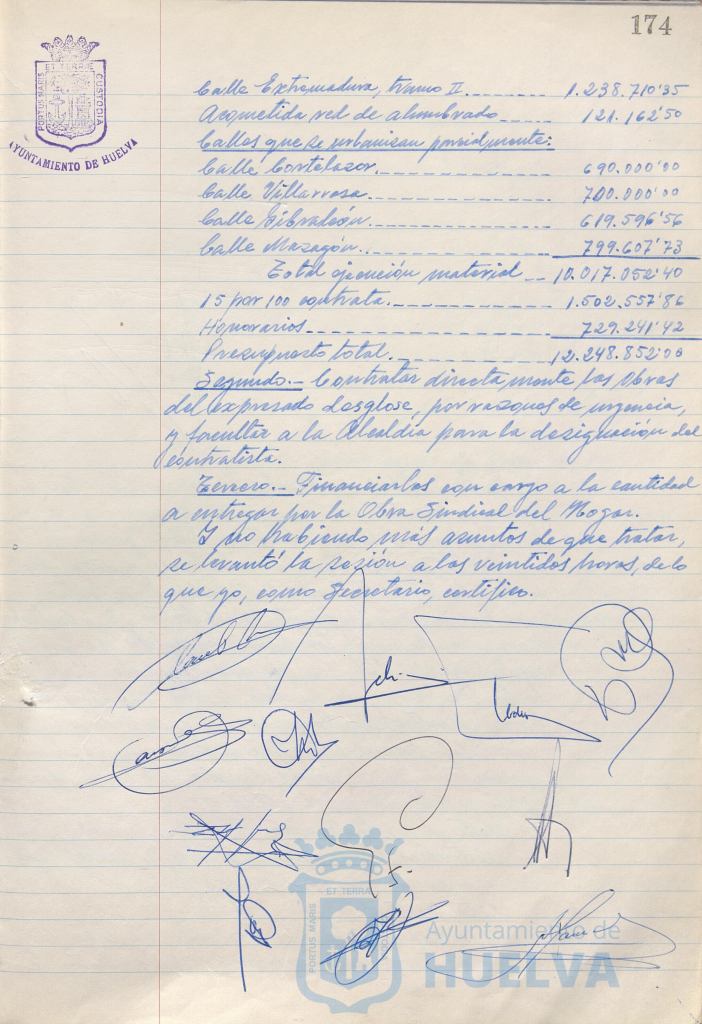 174
PORTUS MARIS ET TERRAE CUSTODIA
AYUNTAMIENTO DE HUELVA
Calle Extremadura, tramo II. 1.238.710'35
Acometida red de alumbrado 121.162'50
Calles que se urbanizan parcialmente:
Calle Cortelazor. 690.000'00
Calle Villarrasa. 700.000'00
Calle Gibraleón. 619.596'56
Calle Mazagón. 799.607'73
Total ejecución material 10.017.052'40
15 por 100 contrata. 1.502.557'86
Honorarios. 729.241'42
Presupuesto total. 12.248.852'00
Segundo.- Contratar directamente las Obras
del expresado desglose, por razones de urgencia,
y facultar a la Alcaldía para la designación del
contratista.
Tercero.- Financiarlas con cargo a la cantidad
a entregar por la Obra Sindical del Hogar.
Y no habiendo más asuntos de que tratar,
se levantó la sesión a las veintidos horas, de lo
que yo, como Secretario, certifico.
PORTUS MARIS ET TERRAE
Ayuntamiento de
HUELVA